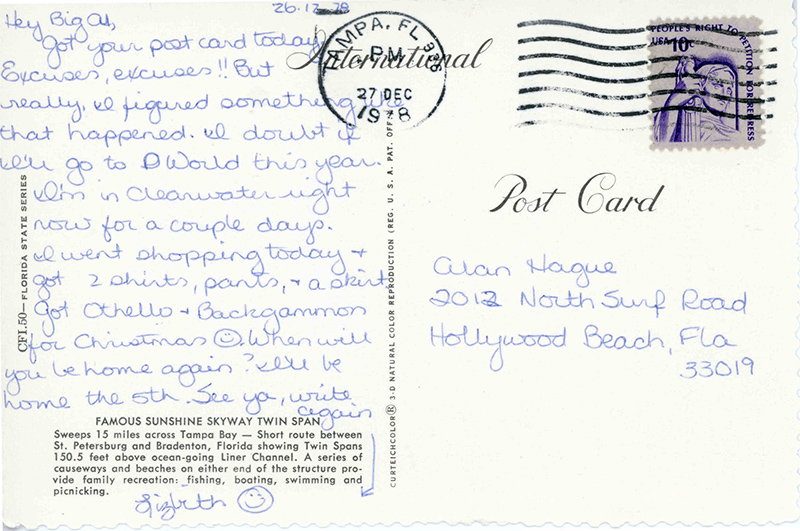 26.12.78
Hey Big Al,
Got your post card today.
Excuses, excuses!! But
really, I figured something like
that happened. I doubt if
I'll go to D World this year.
I'm in Clearwater right
now for a couple days.
I went shopping today +
got 2 shirts, pants, + a skirt.
Got Othello + Backgammon
for Christmas ☺. When will
you be home again? I'll be
home the 5th. See ya, write
again
Lizbith ☺
FAMOUS SUNSHINE SKYWAY TWIN SPAN
Sweeps 15 miles across Tampa Bay — Short route between
St. Petersburg and Bradenton, Florida showing Twin Spans
150.5 feet above ocean-going Liner Channel. A series of
causeways and beaches on either end of the structure pro-
vide family recreation: fishing, boating, swimming and
picnicking.
CFL50—FLORIDA STATE SERIES
CURTEICHCOLOR® 3-D NATURAL COLOR REPRODUCTION (REG. U. S. A. PAT. OFF.)
International
TAMPA, FL 336
PM
27 DEC
1978
PEOPLE'S RIGHT TO PETITION FOR REDRESS
USA 10c
Post Card
Alan Hague
2012 North Surf Road
Hollywood Beach, Fla
33019